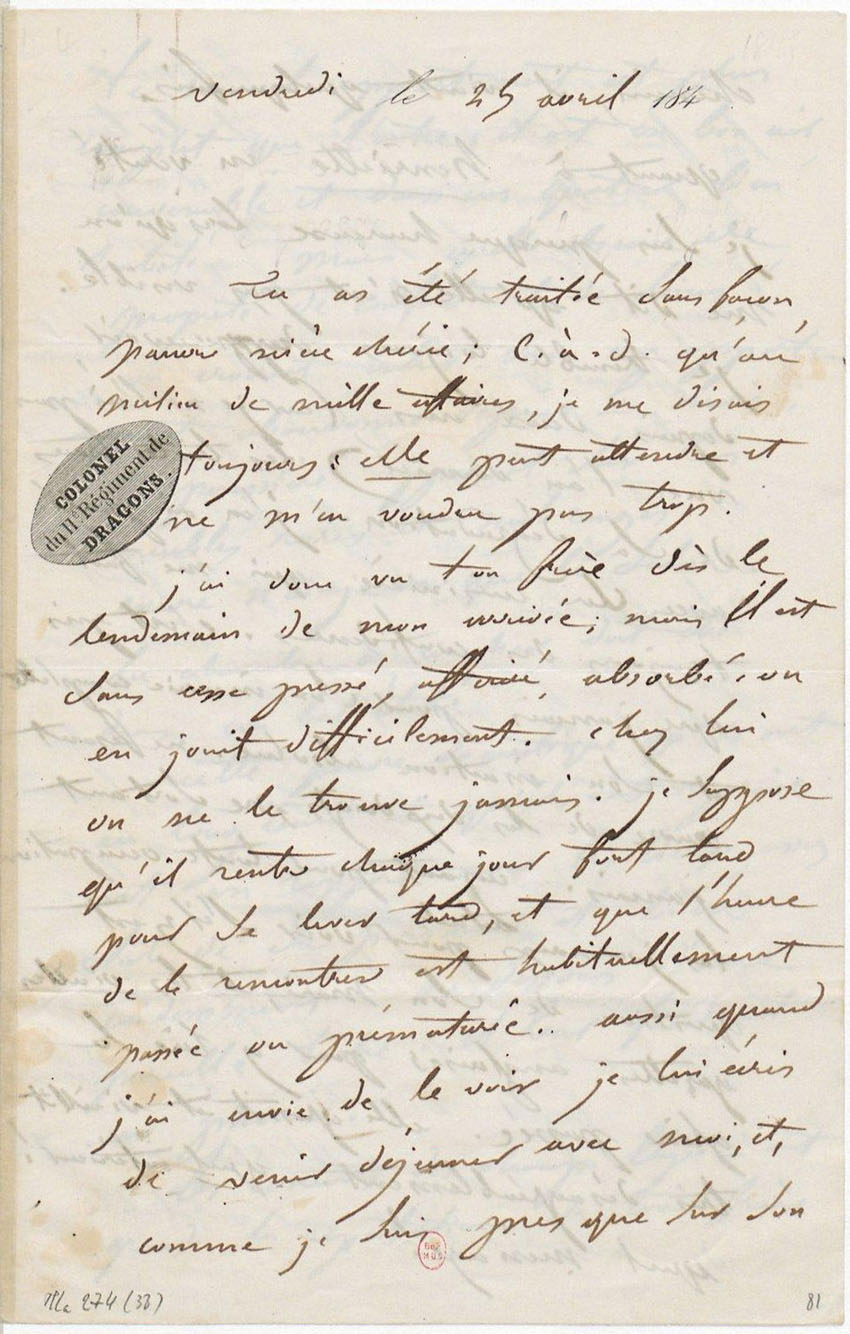 vendredi le 25 avril 184
Tu as été traitée sans façon,
pauvre mère chérie; C.à.d. qu'au
milieu de mille affaires, je me disais
toujours: elle peut attendre et
ne m'en voudra pas trop.
COLONEL
du 11e Régiment de
DRAGONS.
j'ai donc vu ton frère dès le
lendemain de mon arrivée; mais Il est
sans cesse pressé, affairé, absorbé; on
en jouit difficilement. chez lui
on ne le trouve jamais. je suppose
qu'il rentre chaque jour fort tard
pour se lever tard, et que l'heure
de le rencontrer est habituellement
passée ou prématurée.. aussi quand
j'ai envie de le voir je lui écris
de venir déjeuner avec moi, et,
comme je suis presque sur son
Mla 274 (33)
81